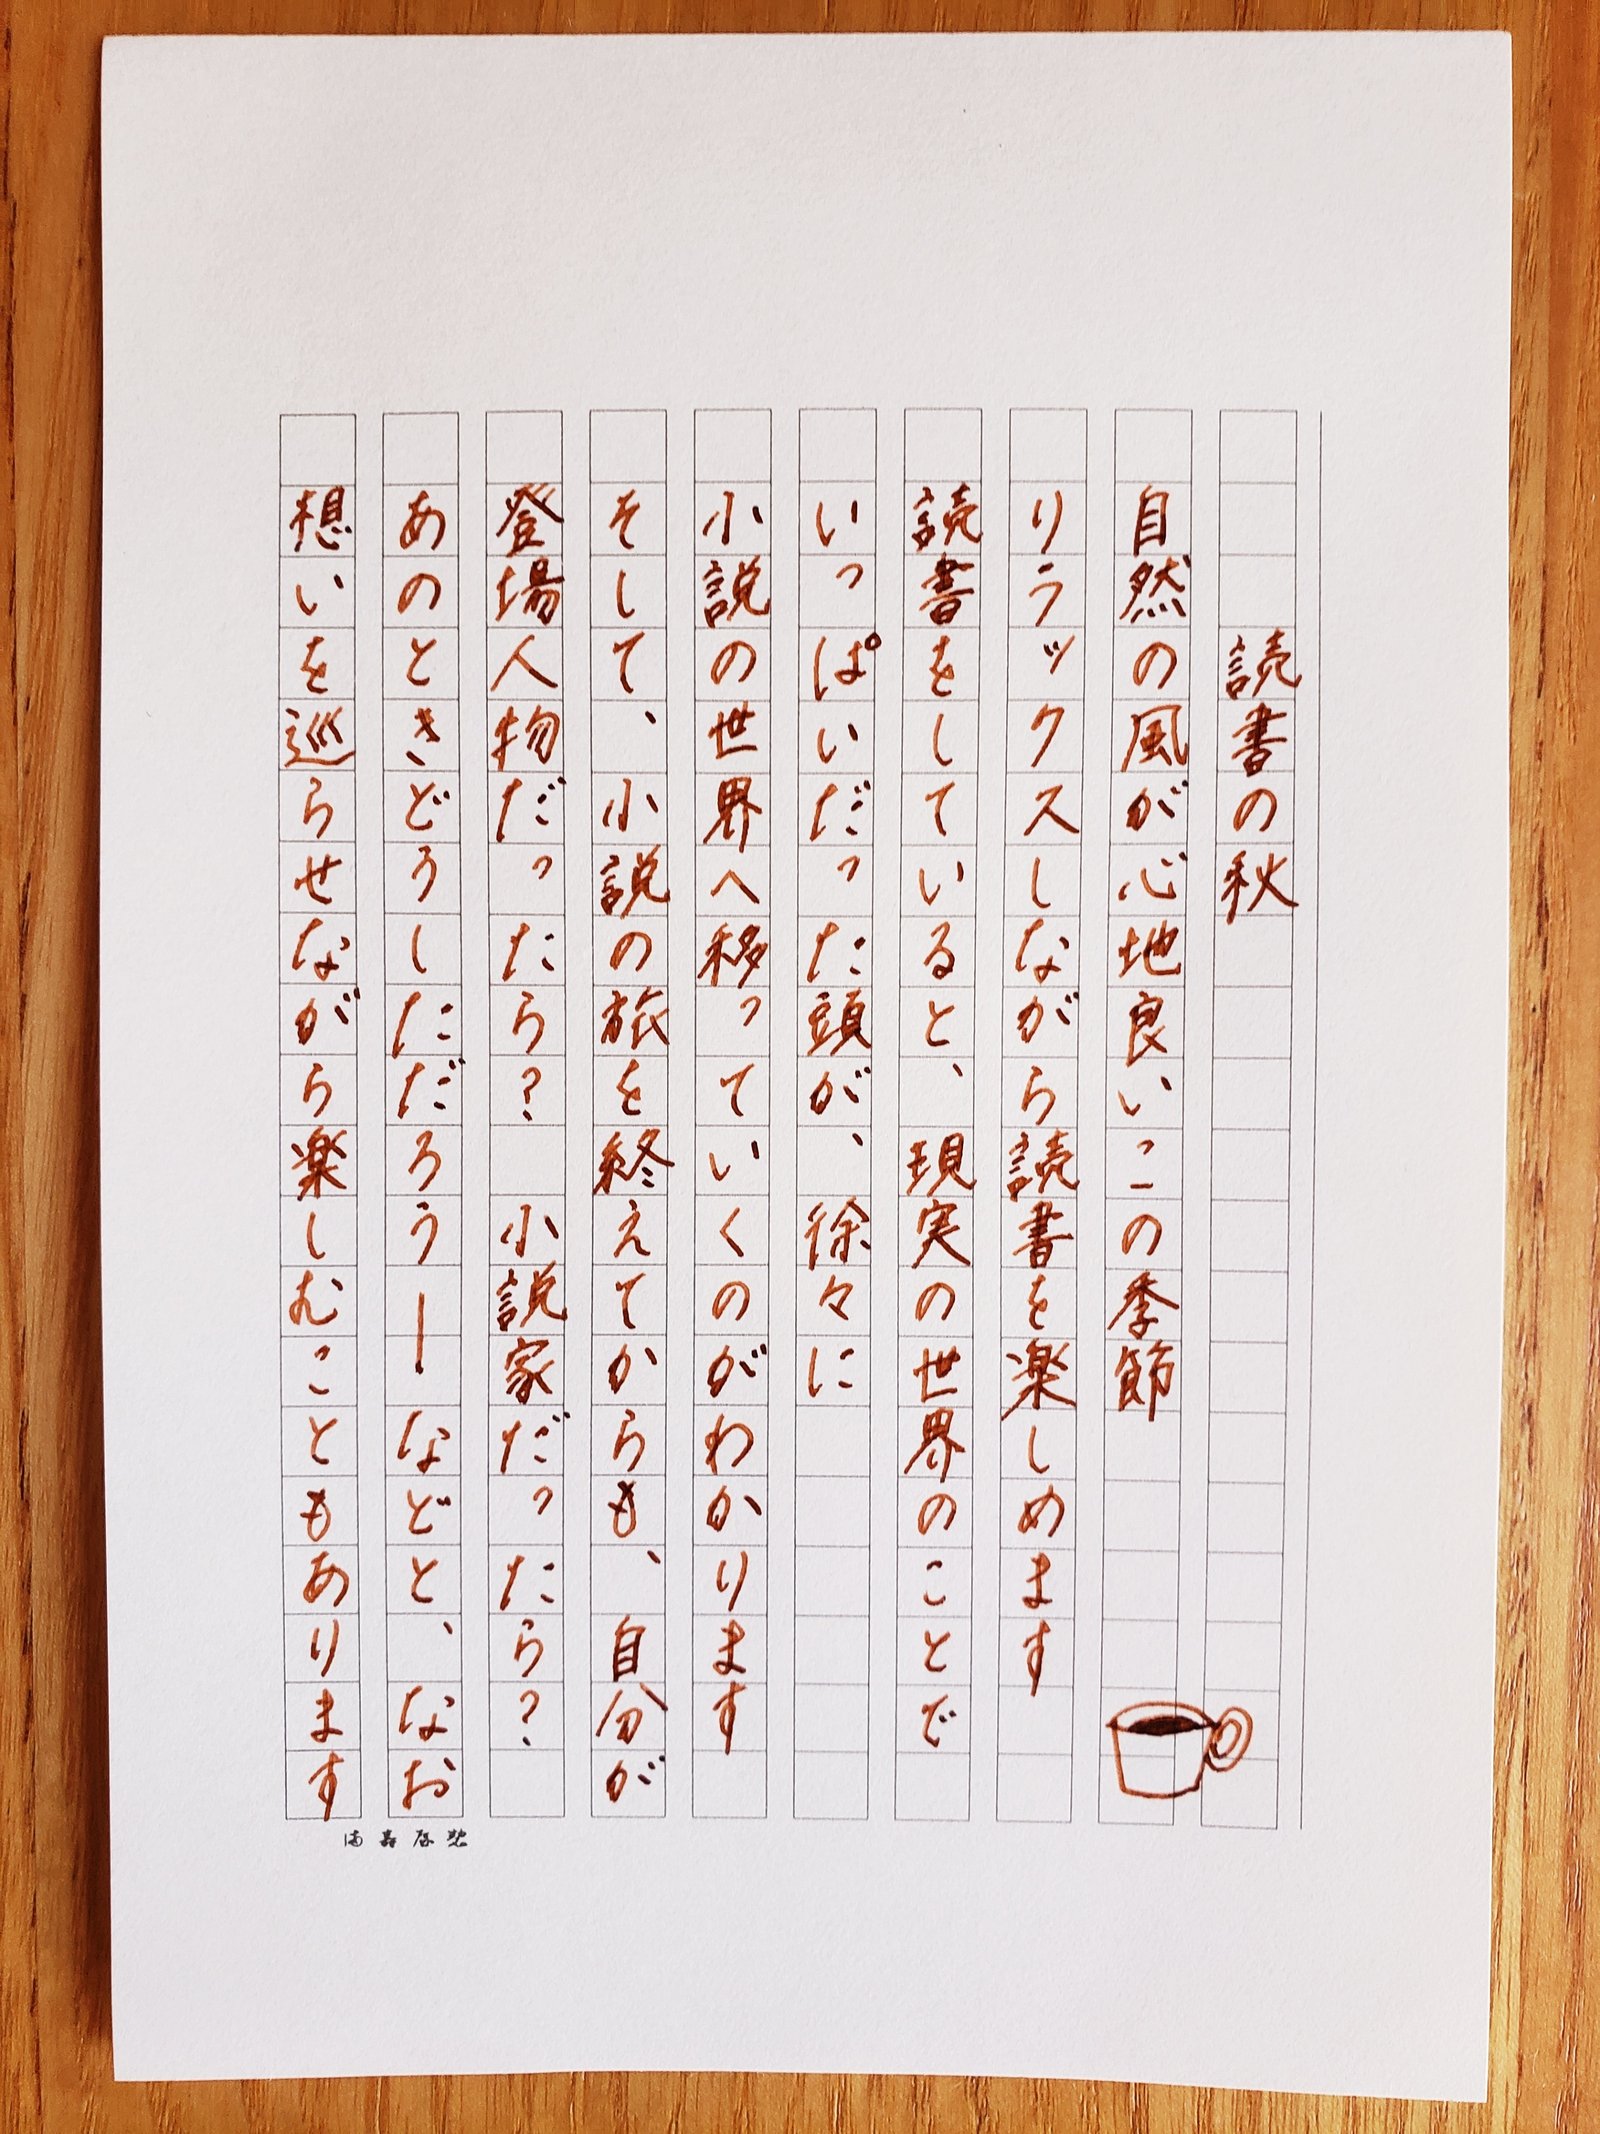 読書の秋
自然の風が心地良いこの季節
リラックスしながら読書を楽しめます
読書をしていると、現実の世界のことで
いっぱいだった頭が、徐々に
小説の世界へ移っていくのがわかります
そして、小説の旅を終えてからも、自分が
登場人物だったら？　小説家だったら？
あのときどうしただろう―などと、なお
想いを巡らせながら楽しむこともあります